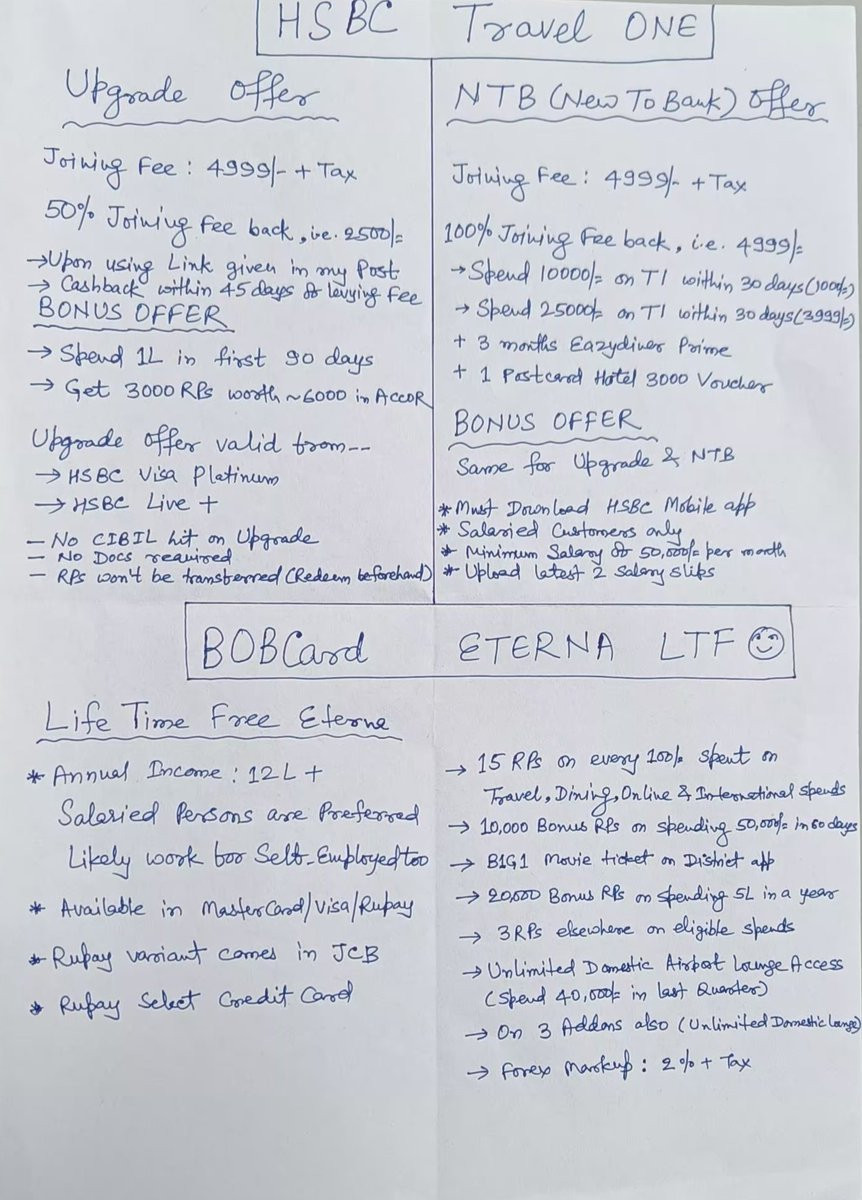 HSBC Travel ONE
Upgrade Offer
Joining Fee: 4999/- + Tax
50% Joining Fee back, i.e. 2500/=
→ Upon using Link given in my Post
→ Cashback within 45 days of levying Fee
BONUS OFFER
→ Spend 1L in first 90 days
→ Get 3000 RPs worth ~6000 in ACCOR
Upgrade Offer valid from--
→ HSBC Visa Platinum
→ HSBC Live +
- No CIBIL hit on Upgrade
- No Docs required
- RPs won't be transferred (Redeem beforehand)
NTB (New To Bank) Offer
Joining Fee: 4999/- + Tax
100% Joining Fee back, i.e. 4999/=
→ Spend 10000/= on T1 within 30 days (1000/=)
→ Spend 25000/= on T1 within 30 days (3999/=)
+ 3 months Eazydiner Prime
+ 1 Postcard Hotel 3000 Voucher
BONUS OFFER
Same for Upgrade & NTB
* Must Download HSBC Mobile app
* Salaried Customers only
* Minimum Salary of 50,000/= per month
* Upload latest 2 Salary slips
BOBCard ETERNA LTF 😉
Life Time Free Eterna
* Annual Income: 12L +
Salaried Persons are Preferred
Likely work for Self-Employed too
* Available in MasterCard/Visa/Rupay
* Rupay variant comes in JCB
* Rupay Select Credit Card
→ 15 RPs on every 100/= spent on
Travel, Dining, Online & International spends
→ 10,000 Bonus RPs on spending 50,000/= in 60 days
→ B1G1 Movie ticket on District app
→ 20,000 Bonus RPs on spending 5L in a year
→ 3 RPs elsewhere on eligible spends
→ Unlimited Domestic Airport Lounge Access
(Spend 40,000/= in last Quarter)
→ On 3 Addons also (Unlimited Domestic Lounge)
→ Forex Markup: 2% + Tax